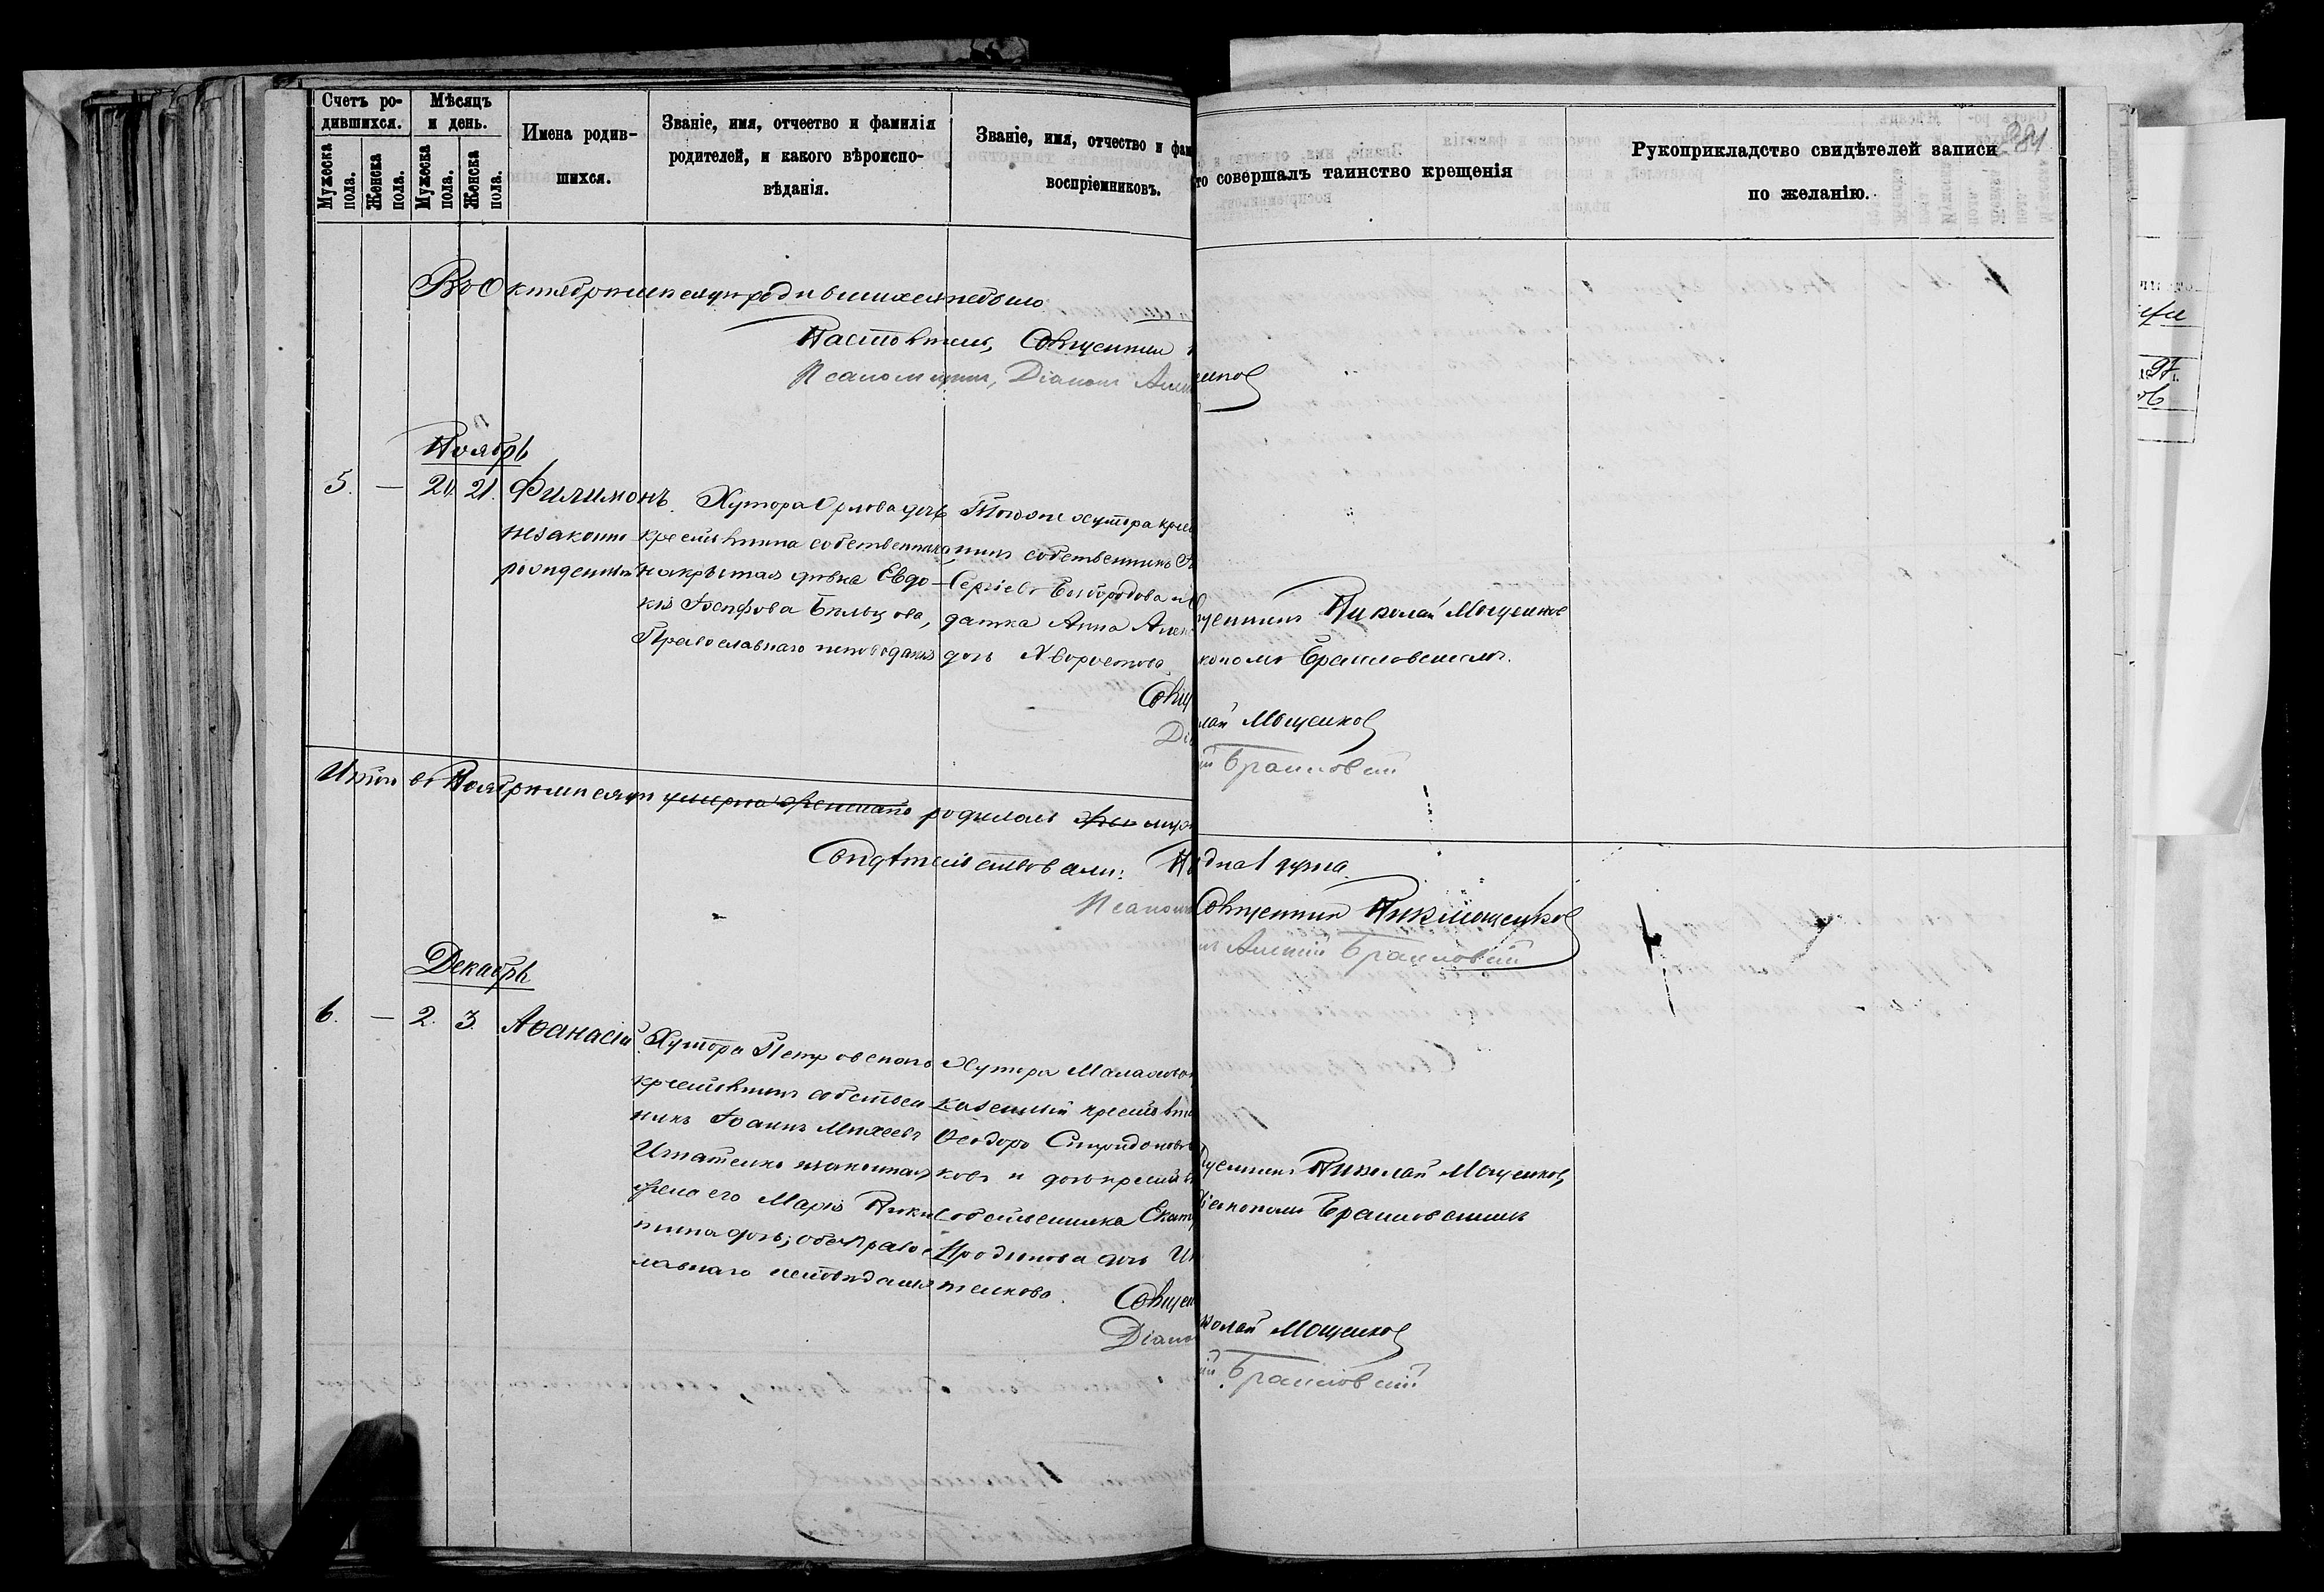 Счетъ ро-
дившихся.
Мѣсяцъ
и день.
Мужеска пола.
Женска пола.
Мужеска пола.
Женска пола.
Имена родив-
шихся.
Званіе, имя, отчество и фамилія
родителей, и какого вѣроиспо-
вѣданія.
Званіе, имя, отчество и фам
воспріемниковъ.
то совершалъ таинство крещенія
Рукоприкладство свидѣтелей записи
по желанію.
281
Въ Октябрѣ мѣсяцѣ родившихся небыло
Настоятель, Священни
Псаломщикъ, Діаконъ Але
Ноябрь
5. — 20. 21. Филимонъ.
незаконно
рожденный
Хутора Орлова дочь
крестьянина собственника
накрытая дѣвка Евдо-
кія Іосифова Бѣльцова,
Православнаго исповѣданія
Тогоже хутора крест
нинъ собственникъ
Сергіевъ Бобородова и
датка Анна Алек
дочь Хворостова
щенникъ Николай Мощенков
кономъ Браиловскимъ.
Свящ
лай Мощенков
Діа
й Браиловскій
Итого въ Ноябрѣ мѣсяцѣ родилось муж
Свидѣтельствовали:
Священник Ник Мощенков
Псалом
нъ Алексій Браиловскій
Декабрь
6. — 2. 3. Аѳанасій
Хутора Петровскаго
крестьянинъ собствен
никъ Іоаннъ Михеевъ
Игнатенко и законная
жена его Марія Ники
тина дочь; оба Правос
лавнаго исповѣданія
Хутора
казенный крестьян
Ѳеодоръ Спиридоновъ
ковъ и дочь крестьян
Собственника Екат
Иродіонова дочь Иг
тенкова.
щенникъ Николай Мощенков,
Діакономъ Браиловскимъ
Священ
колай Мощенков
Діако
ій Браиловскій